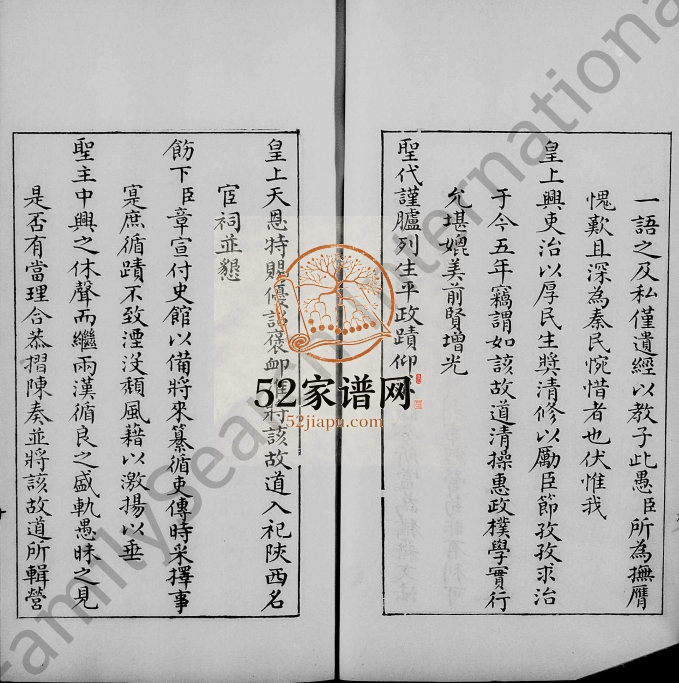 一語之及私僅遺經以教子此愚臣所為撫膺
愧歎且深為秦民惋惜者也伏惟我
皇上興吏治以厚民生獎清修以勵臣節孜孜求治
于今五年竊謂如該故道清操惠政樸學實行
允堪媲美前賢增光
聖代謹臚列生平政蹟仰
皇上天恩特賜優詔褒卹准將該故道入祀陝西名
宦祠並懇
飭下臣章宣付史館以備將來纂循吏傳時采擇事
寔庶循蹟不致湮没頹風藉以激揚以垂
聖主中興之休聲而繼兩漢循良之盛軌愚昧之見
是否有當理合恭摺陳奏並將該故道所輯營
52家谱网
52jiapu.com
FamilySearch International